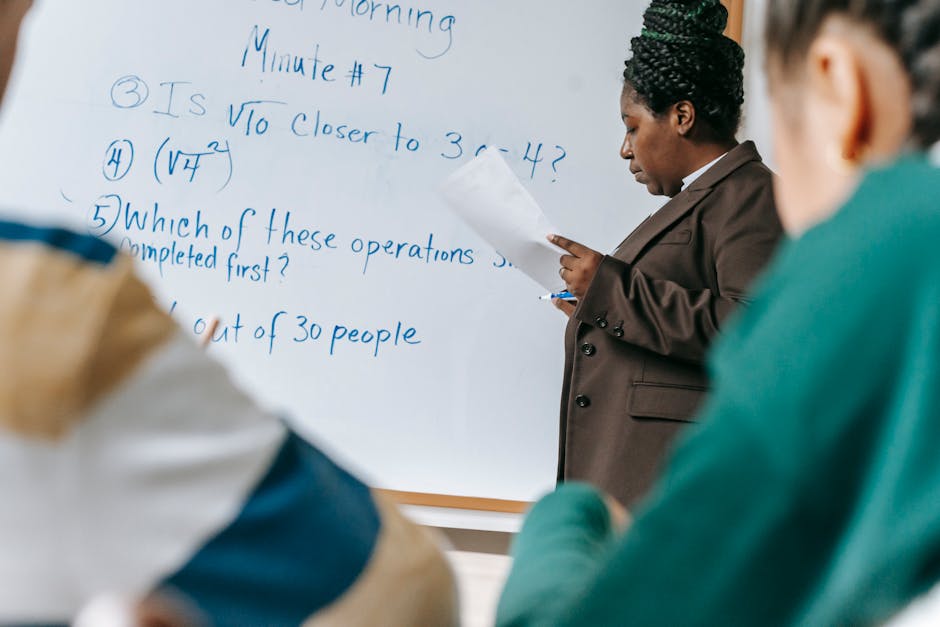 Morning
Minute #7
③ Is √10 Closer to 3 4?
④ (√4²)
⑤ Which of these operations
Completed first?
out of 30 people